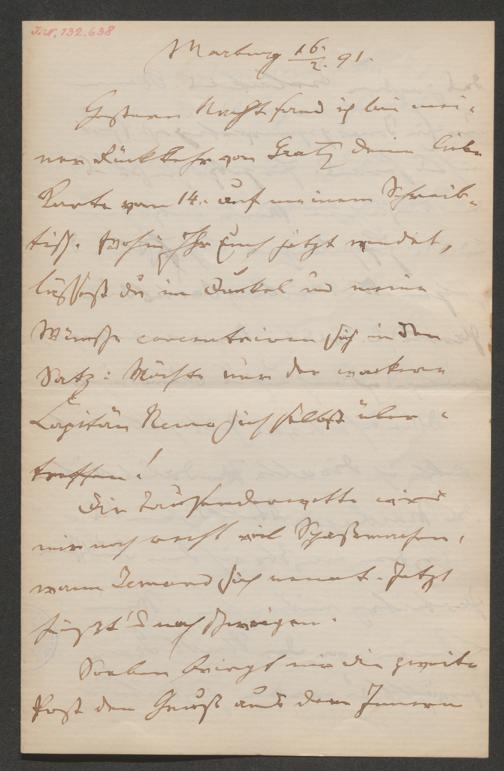 J.N. 132.638
Marburg 16./2. 91.
Gestern Nacht fand ich bei mei-
ner Rückkehr von Gratz deine liebe
Karte vom 14. auf meinem Schreib-
tisch. Wohin Ihr Euch jetzt wendet,
lässest du im Dunkel u meine
Wünsche concentriren sich in dem
Satz: Möchte nur der wackere
Capitän Nemo sich selbst über-
treffen!
Die Tausenderwette wird
mir noch recht viel Spaß machen,
wann Jemand sich nennt. Jetzt
noch schweigen.
Soeben bringt mir die zweite
Post den Gruß aus dem Innern